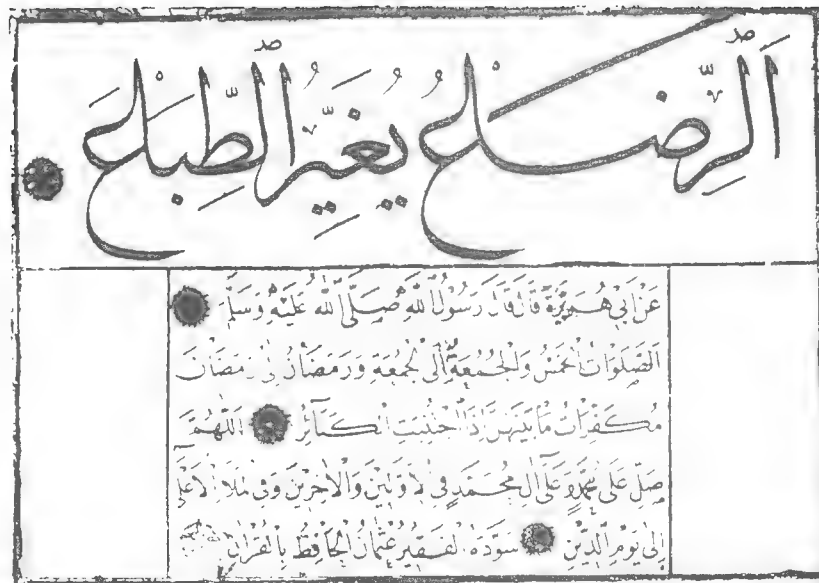 اَلرِّضَاعُ يُغَيِّرُ الطِّبَاعَ
عَنْ اَبِي هُرَيْرَةَ قَالَ قَالَ رَسُولُ اللّٰهِ صَلَّى اللّٰهُ عَلَيْهِ وَسَلَّمَ
اَلصَّلَوَاتُ الْخَمْسُ وَالْجُمُعَةُ اِلَى الْجُمُعَةِ وَرَمَضَانُ اِلَى رَمَضَانَ
مُكَفِّرَاتُ مَا بَيْنَهُنَّ اِذَا اجْتُنِبَتِ الْكَبَائِرُ اَللّٰهُمَّ
صَلِّ عَلَى مُحَمَّدٍ وَعَلَى اٰلِ مُحَمَّدٍ فِي الْاَوَّلِينَ وَالْاٰخِرِينَ وَفِي الْمَلَاِ الْاَعْلَى
اِلَى يَوْمِ الدِّينِ سَوَّدَهُ الْفَقِيرُ عُثْمَانُ الْحَافِظُ بِالْقُرْاٰنِ